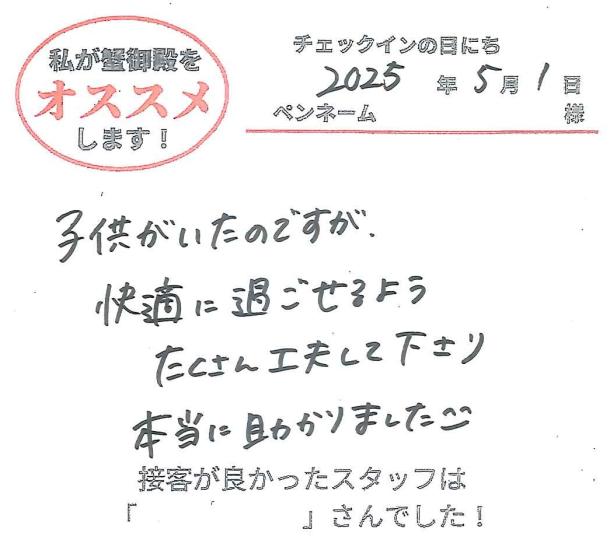 私が蟹御殿を
オススメ
します！
チェックインの日にち
2025年5月1日
ペンネーム 様
子供がいたのですが、
快適に過ごせるよう
たくさん工夫して下さり
本当に助かりました
接客が良かったスタッフは
「 」さんでした！